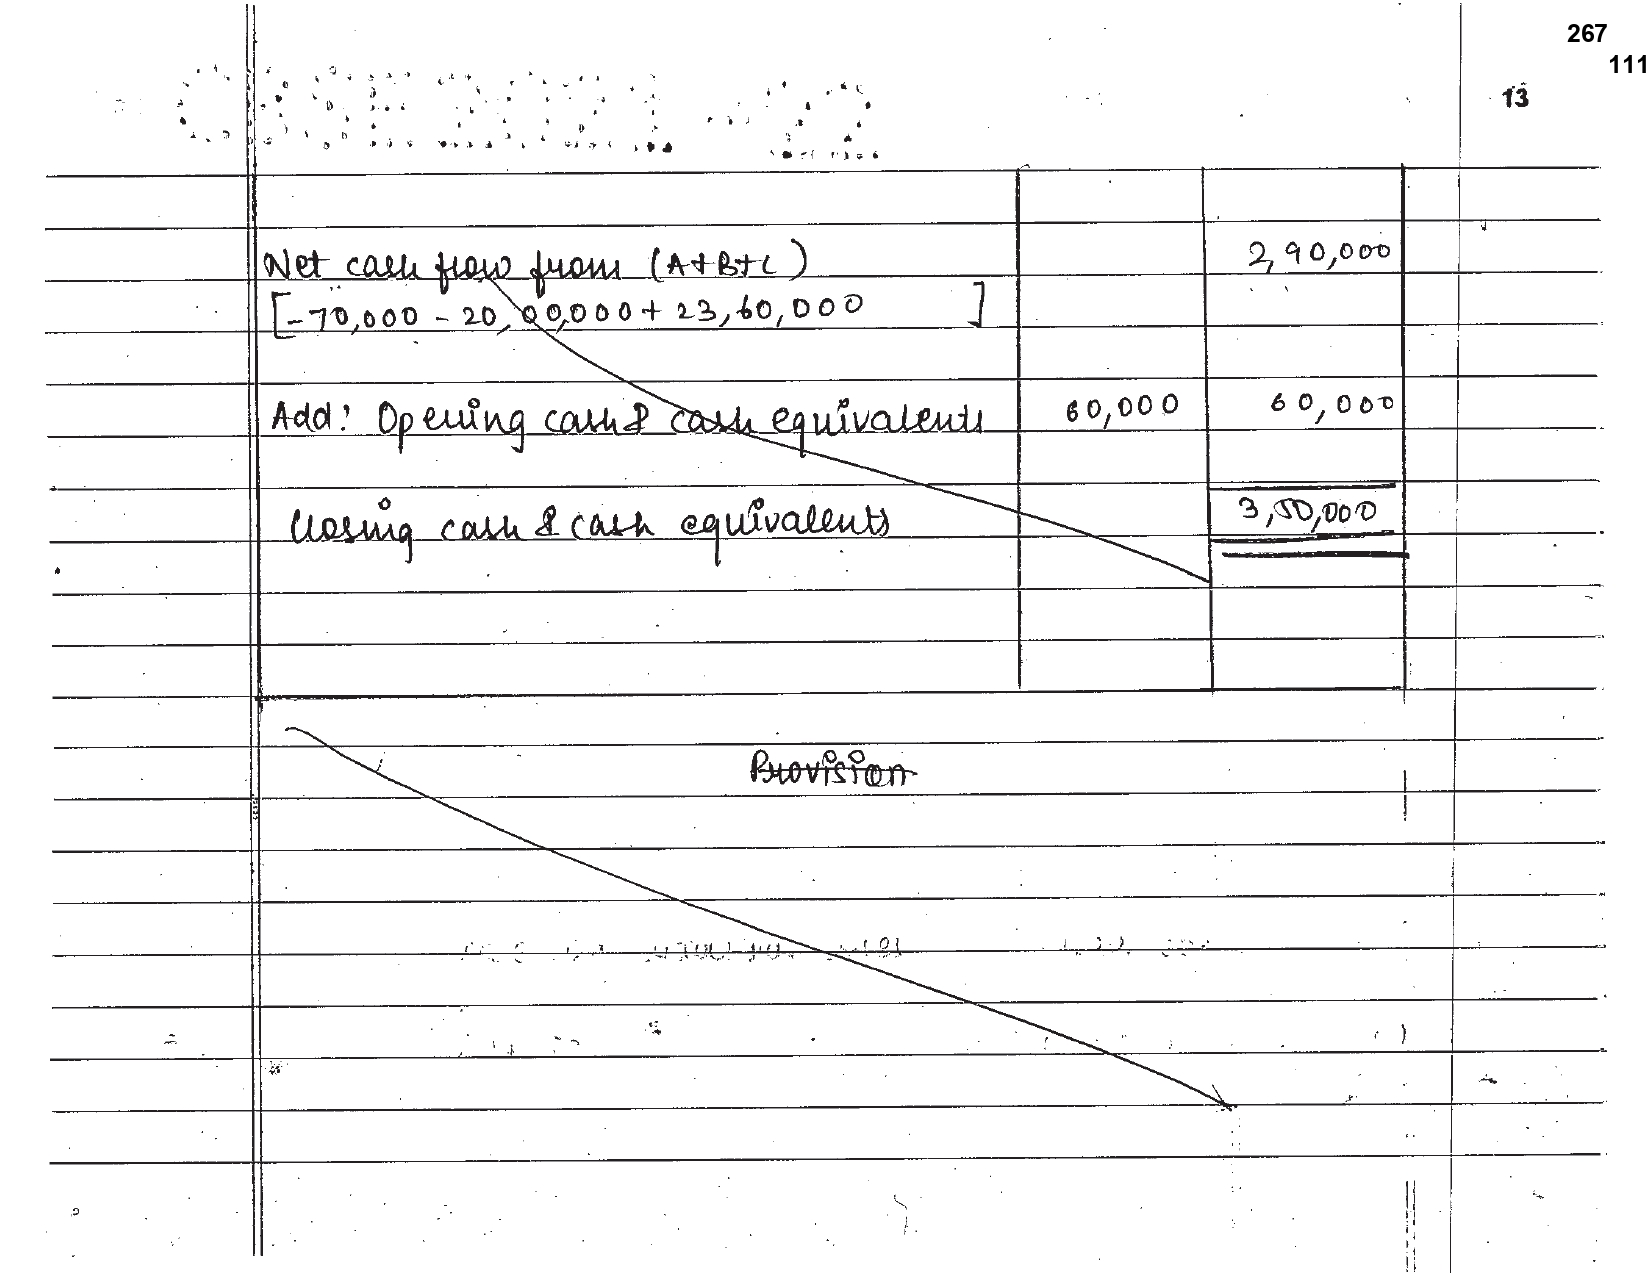 267
111
13
CBSE 2021 - 22
Net cash flow from (A+B+C) 2,90,000
[-70,000 - 20,00,000 + 23,60,000 ]
Add: Opening cash & cash equivalents 60,000 60,000
Closing cash & cash equivalents 3,50,000
Provision